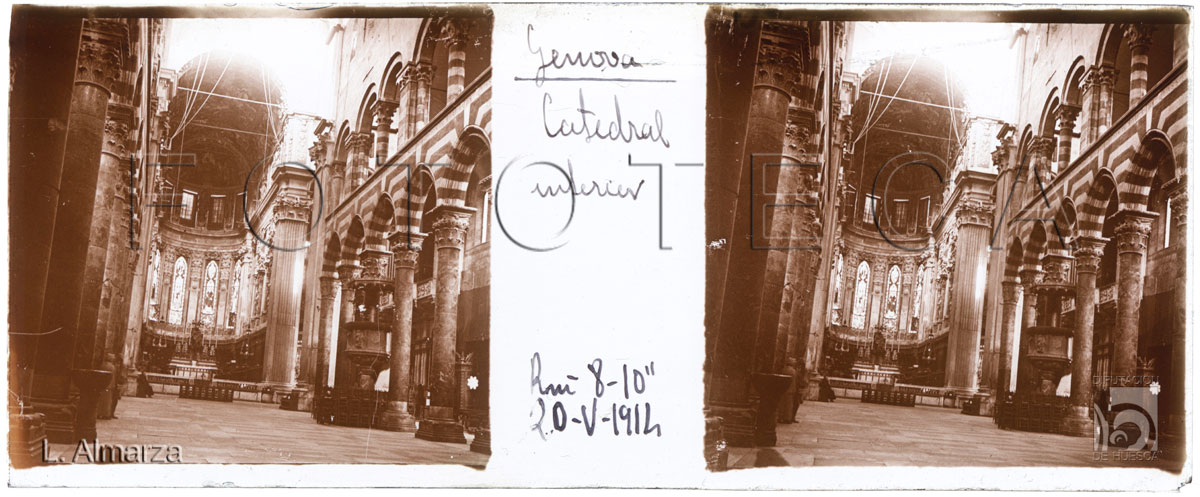 Genova
Catedral
interior
8-10"
20-V-1914
FOTOTECA
L. Almarza
DIPUTACIÓN
DE HUESCA